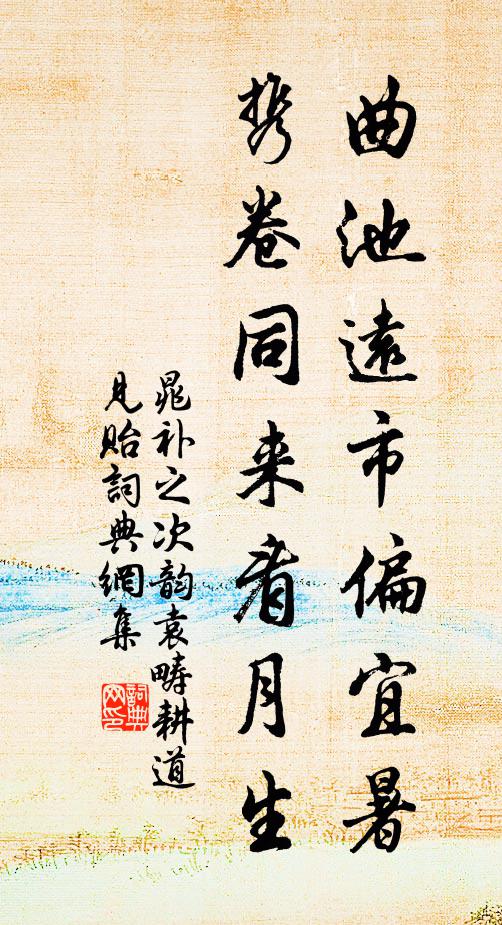 曲池遠市偏宜暑
携卷同来看月生
晁补之次韵袁畴耕道
見贻詞典網集
詞典
网印